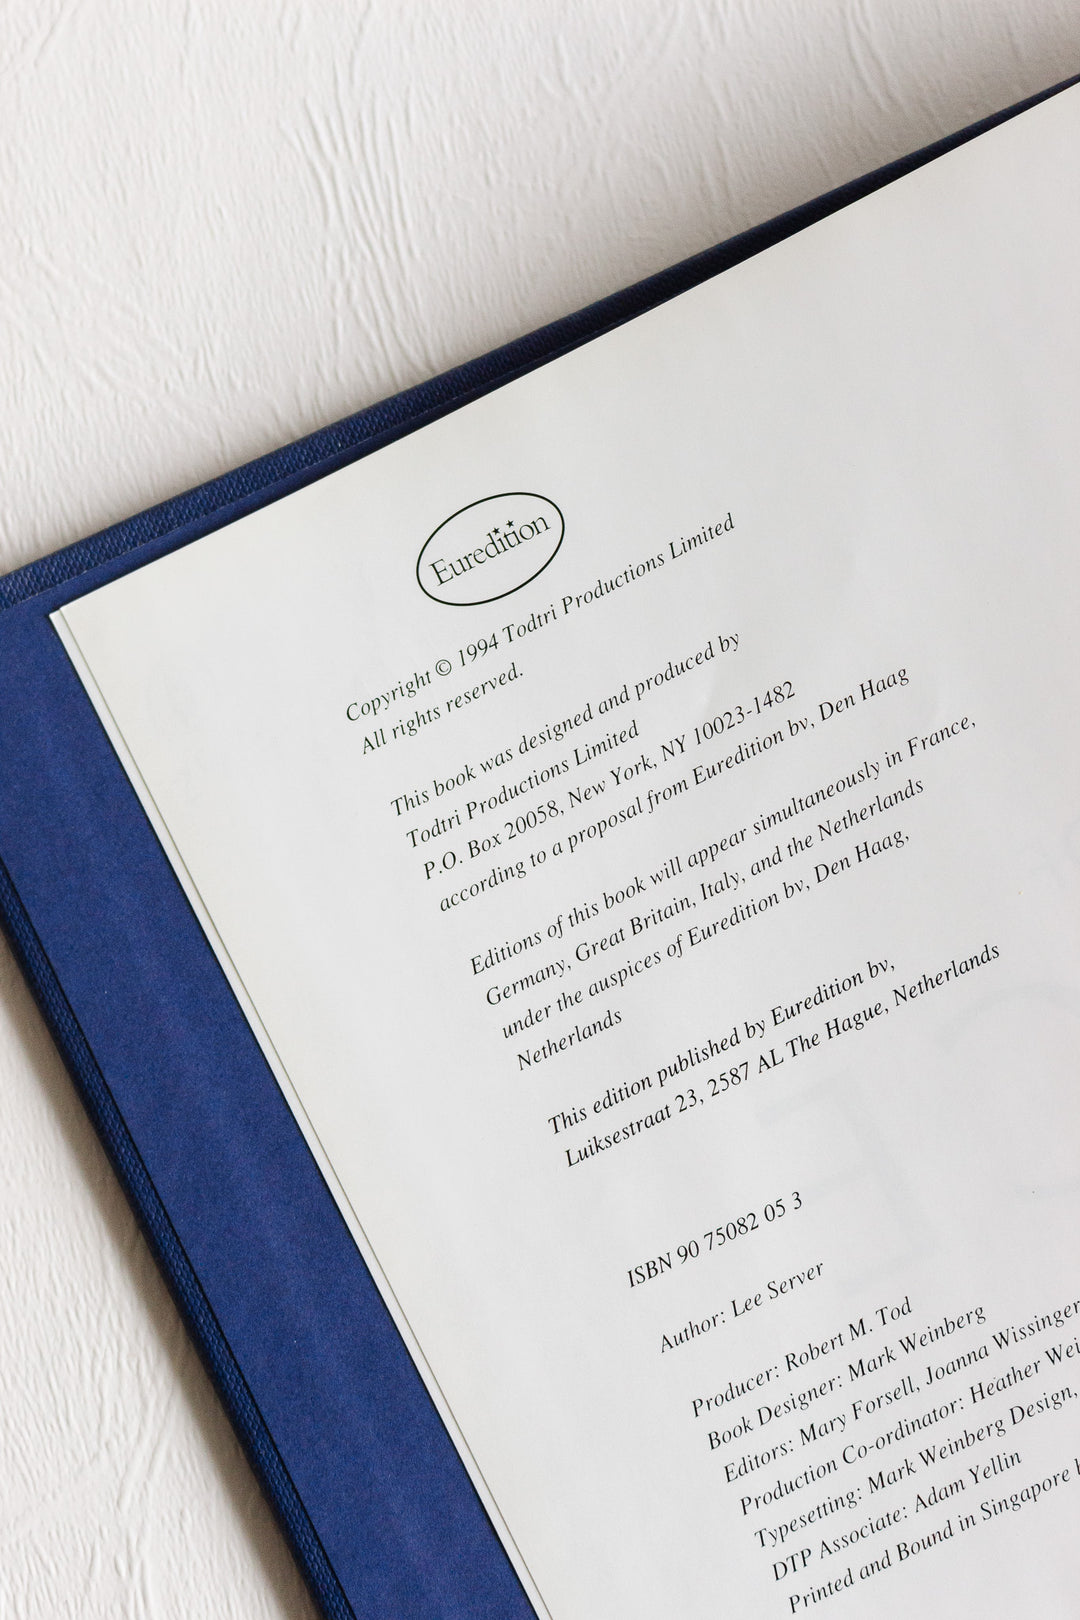 Euredition
Copyright © 1994 Todtri Productions Limited
All rights reserved.
This book was designed and produced by
Todtri Productions Limited
P.O. Box 20058, New York, NY 10023-1482
according to a proposal from Euredition bv, Den Haag
Editions of this book will appear simultaneously in France,
Germany, Great Britain, Italy, and the Netherlands
under the auspices of Euredition bv, Den Haag,
Netherlands
This edition published by Euredition bv,
Luiksestraat 23, 2587 AL The Hague, Netherlands
ISBN 90 75082 05 3
Author: Lee Server
Producer: Robert M. Tod
Book Designer: Mark Weinberg
Editors: Mary Forsell, Joanna Wissinger
Production Co-ordinator: Heather
Typesetting: Mark Weinberg Design,
DTP Associate: Adam Yellin
Printed and Bound in Singapore